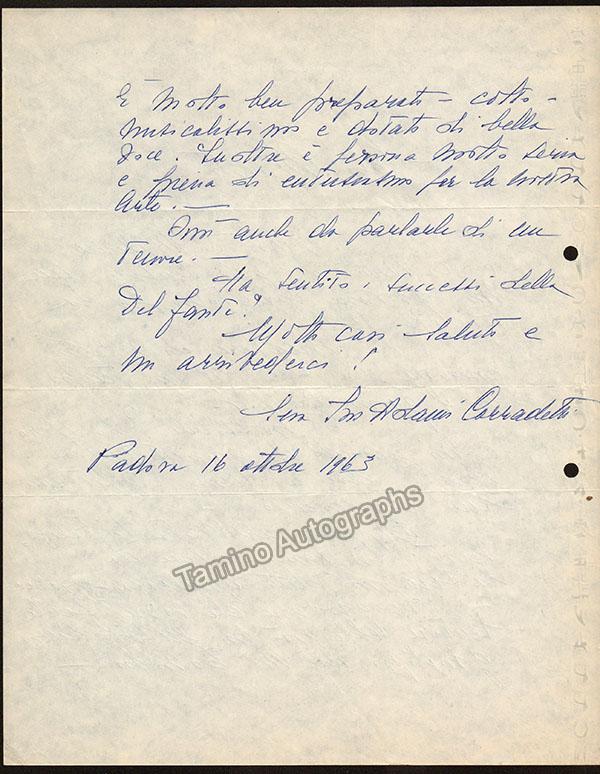 È molto ben preparato - colto -
musicalissimo e dotato di bella
voce. Inoltre è persona molto seria
e piena di entusiasmo per la nostra
Arte. —
anche da parlarle di un
tenore. —
Ha sentito i successi della
Del Fante?
Molti cari saluti e
un arrivederci!
Sua Iris Adami Corradetti
Padova 16 ottobre 1963
Tamino Autographs